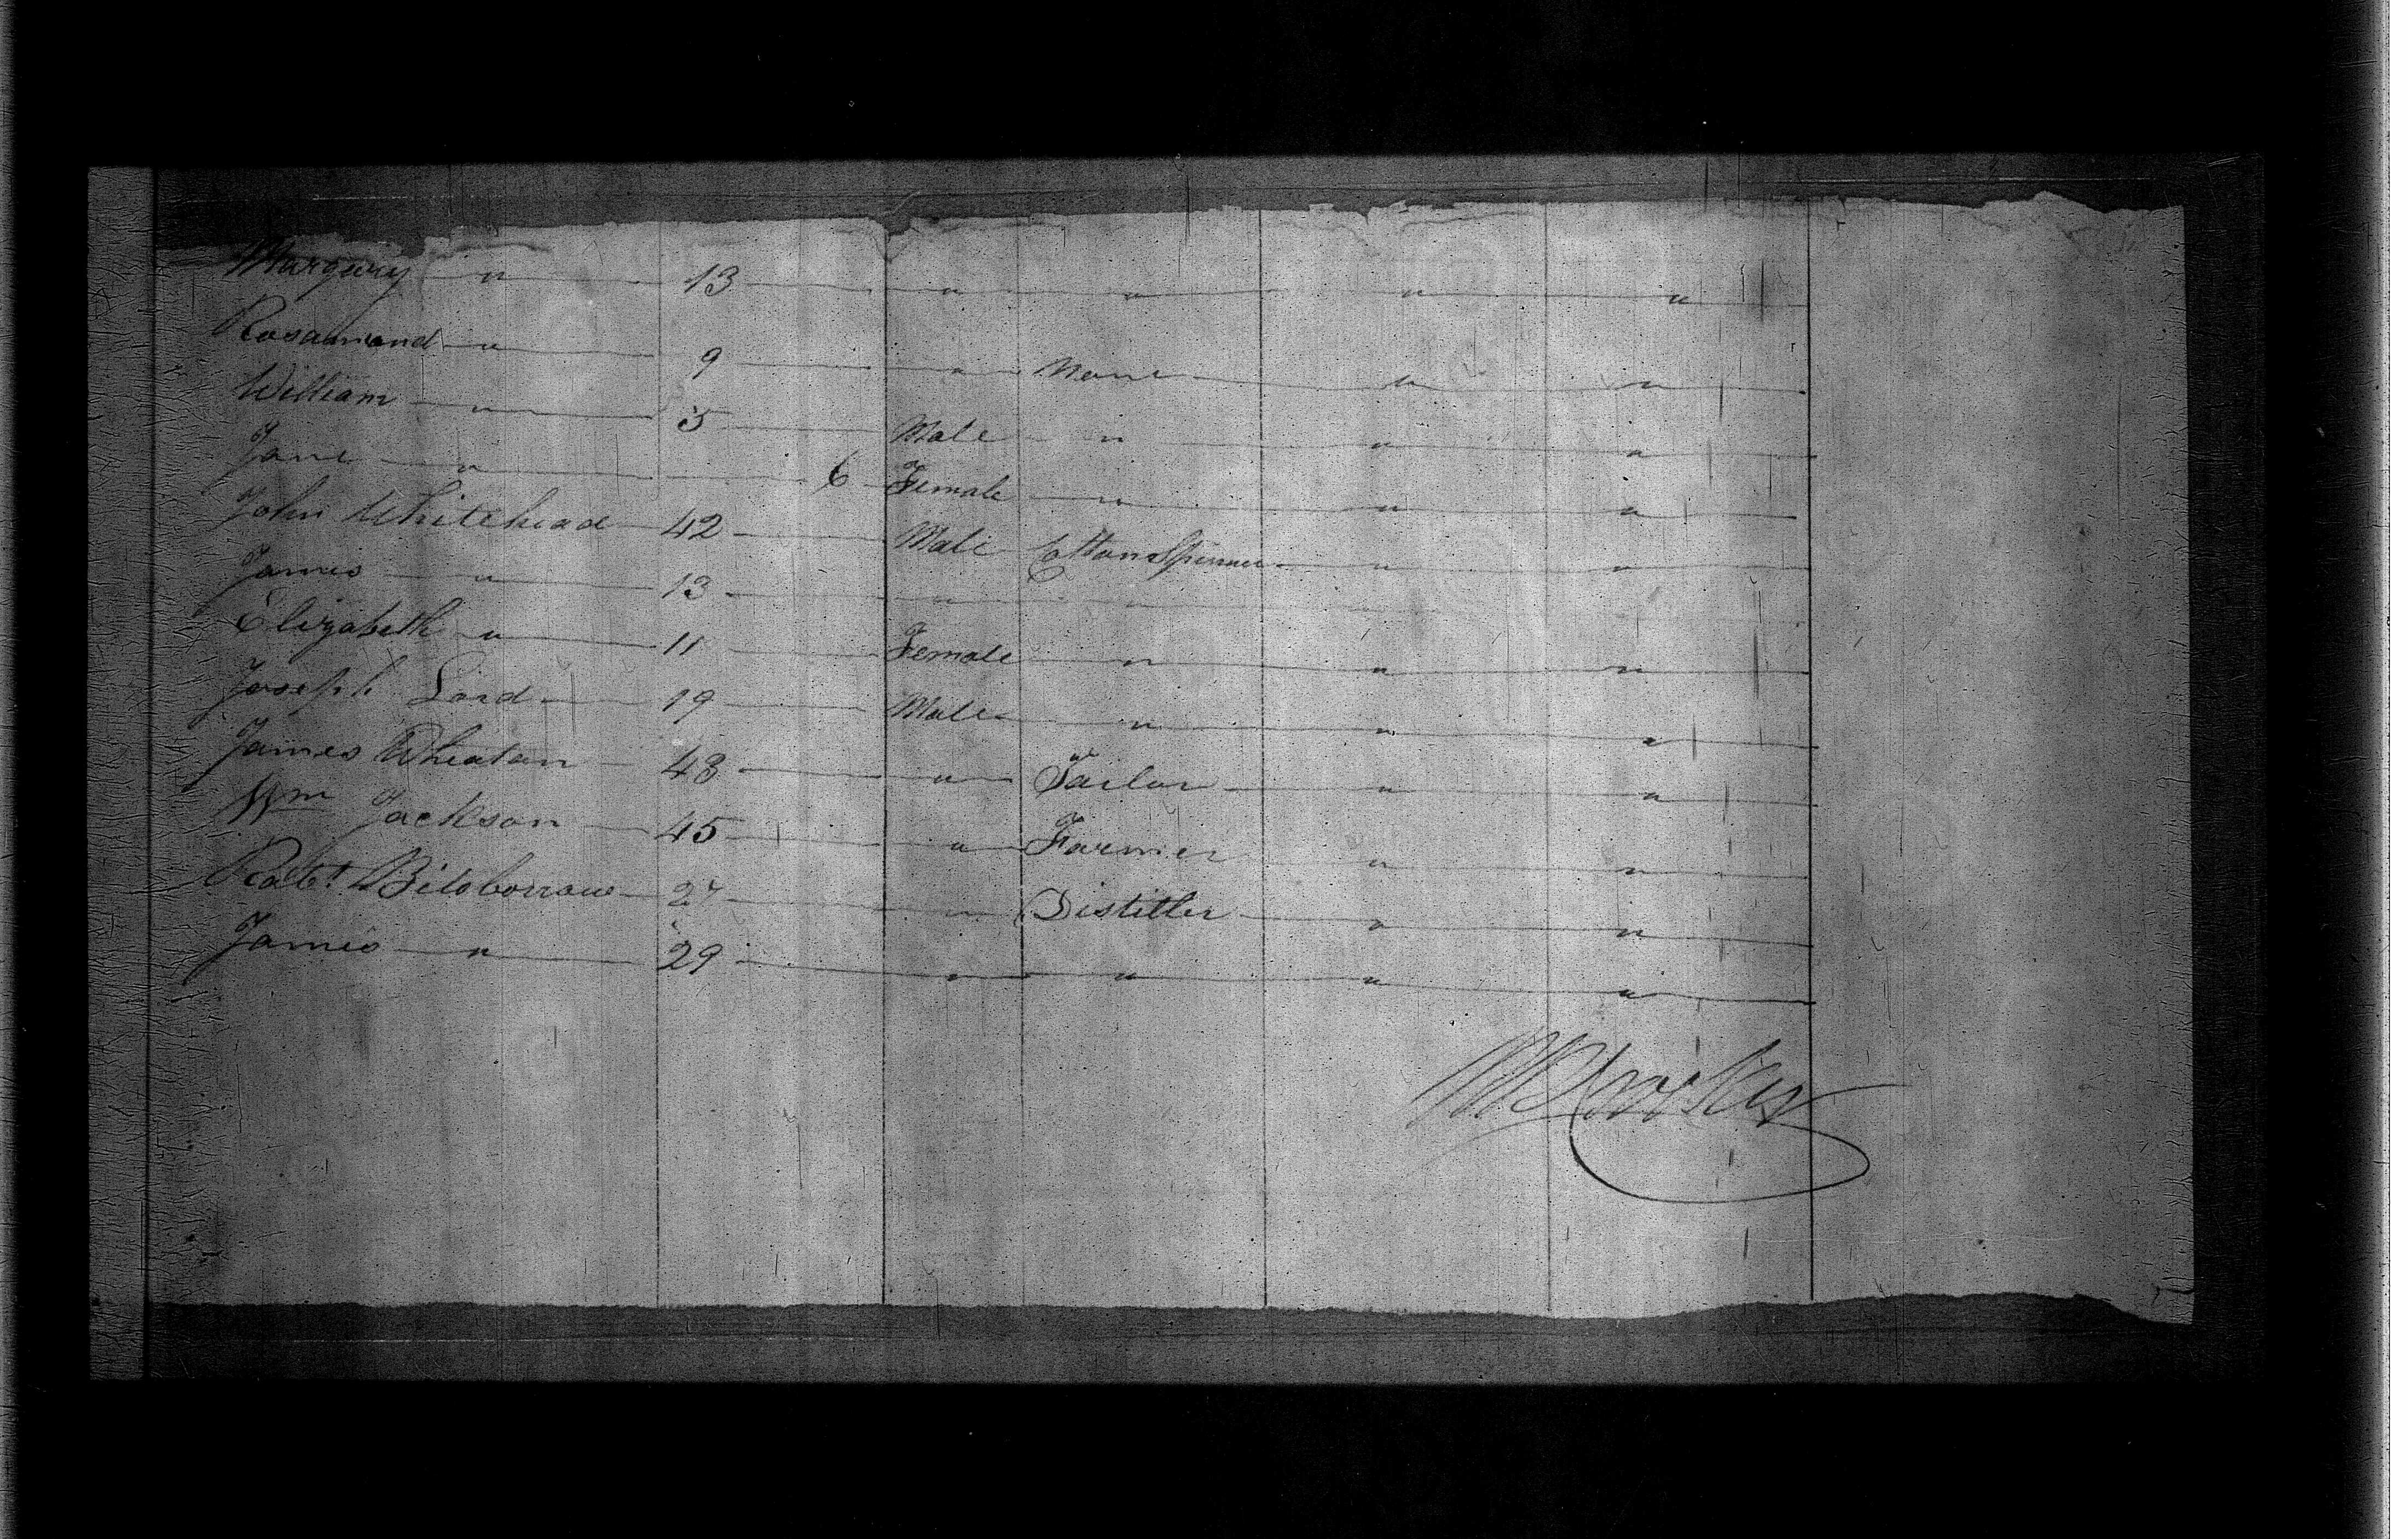 Margery " 13 " " " "
Rosamond " 9 " None " "
William " 5 Male " " "
Jane " 6 Female " " "
John Whitehead 42 Male Cotton Spinner " "
James " 13 " "
Elizabeth " 11 Female " " "
Joseph Lord 19 Male " " "
James Wheaton 48 " Tailor " "
Wm Jackson 45 " Farmer " "
Robt. Bilsborrow 27 " Distiller " "
James " 29 " " " "